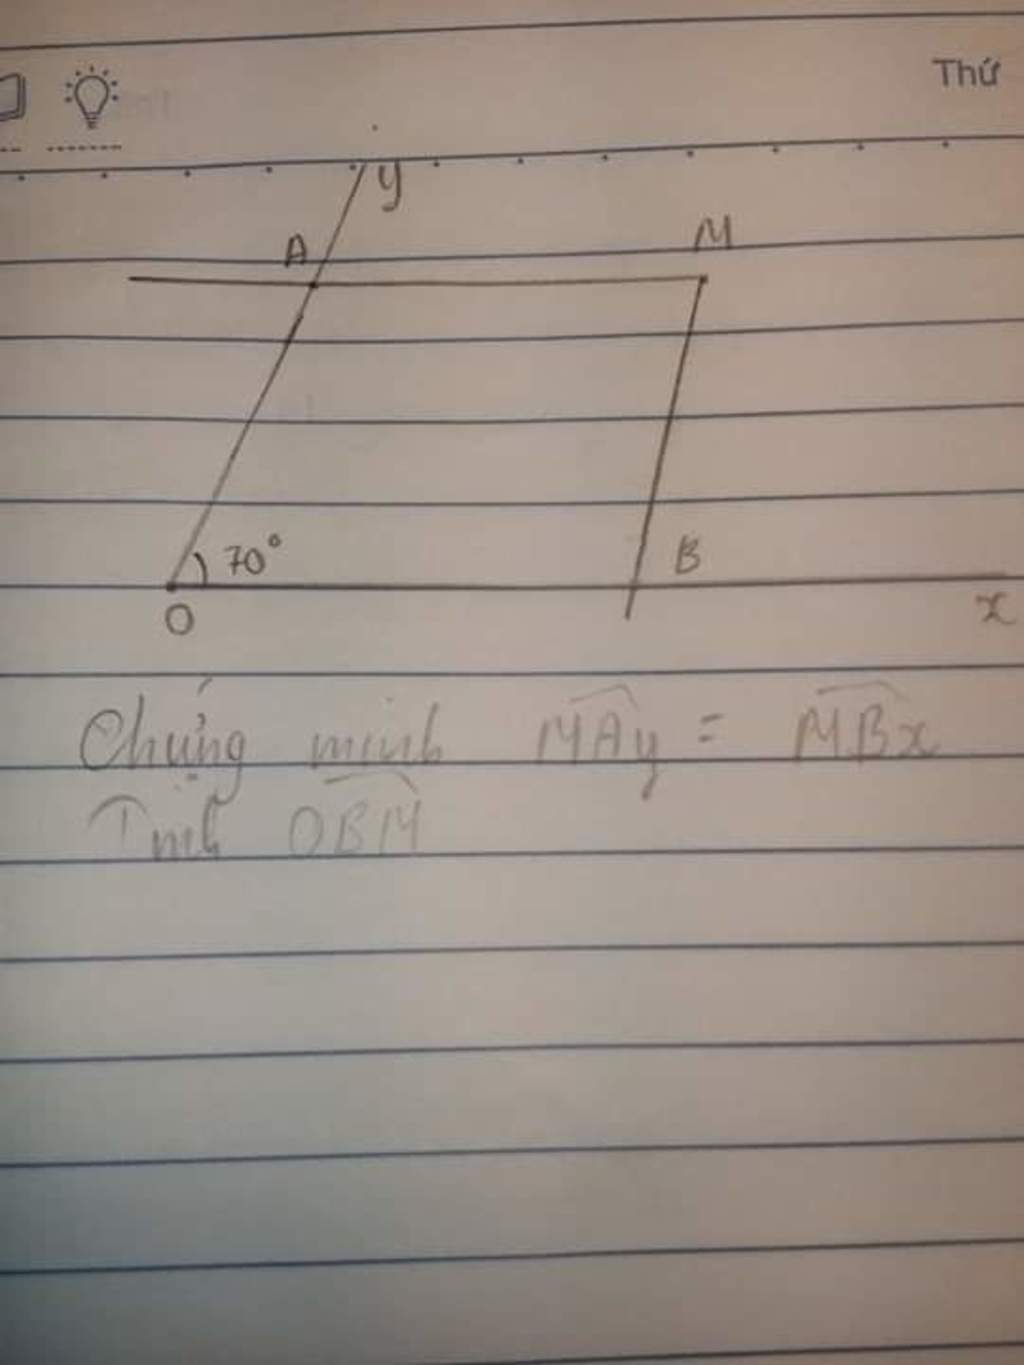 Thứ
y
A
M
70°
B
O
x
Chứng minh MAy = MBx
Tính OBM